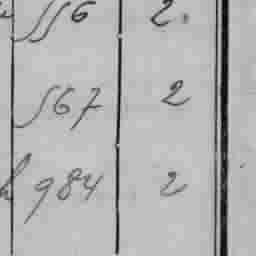 556 2.
567 2
984 2